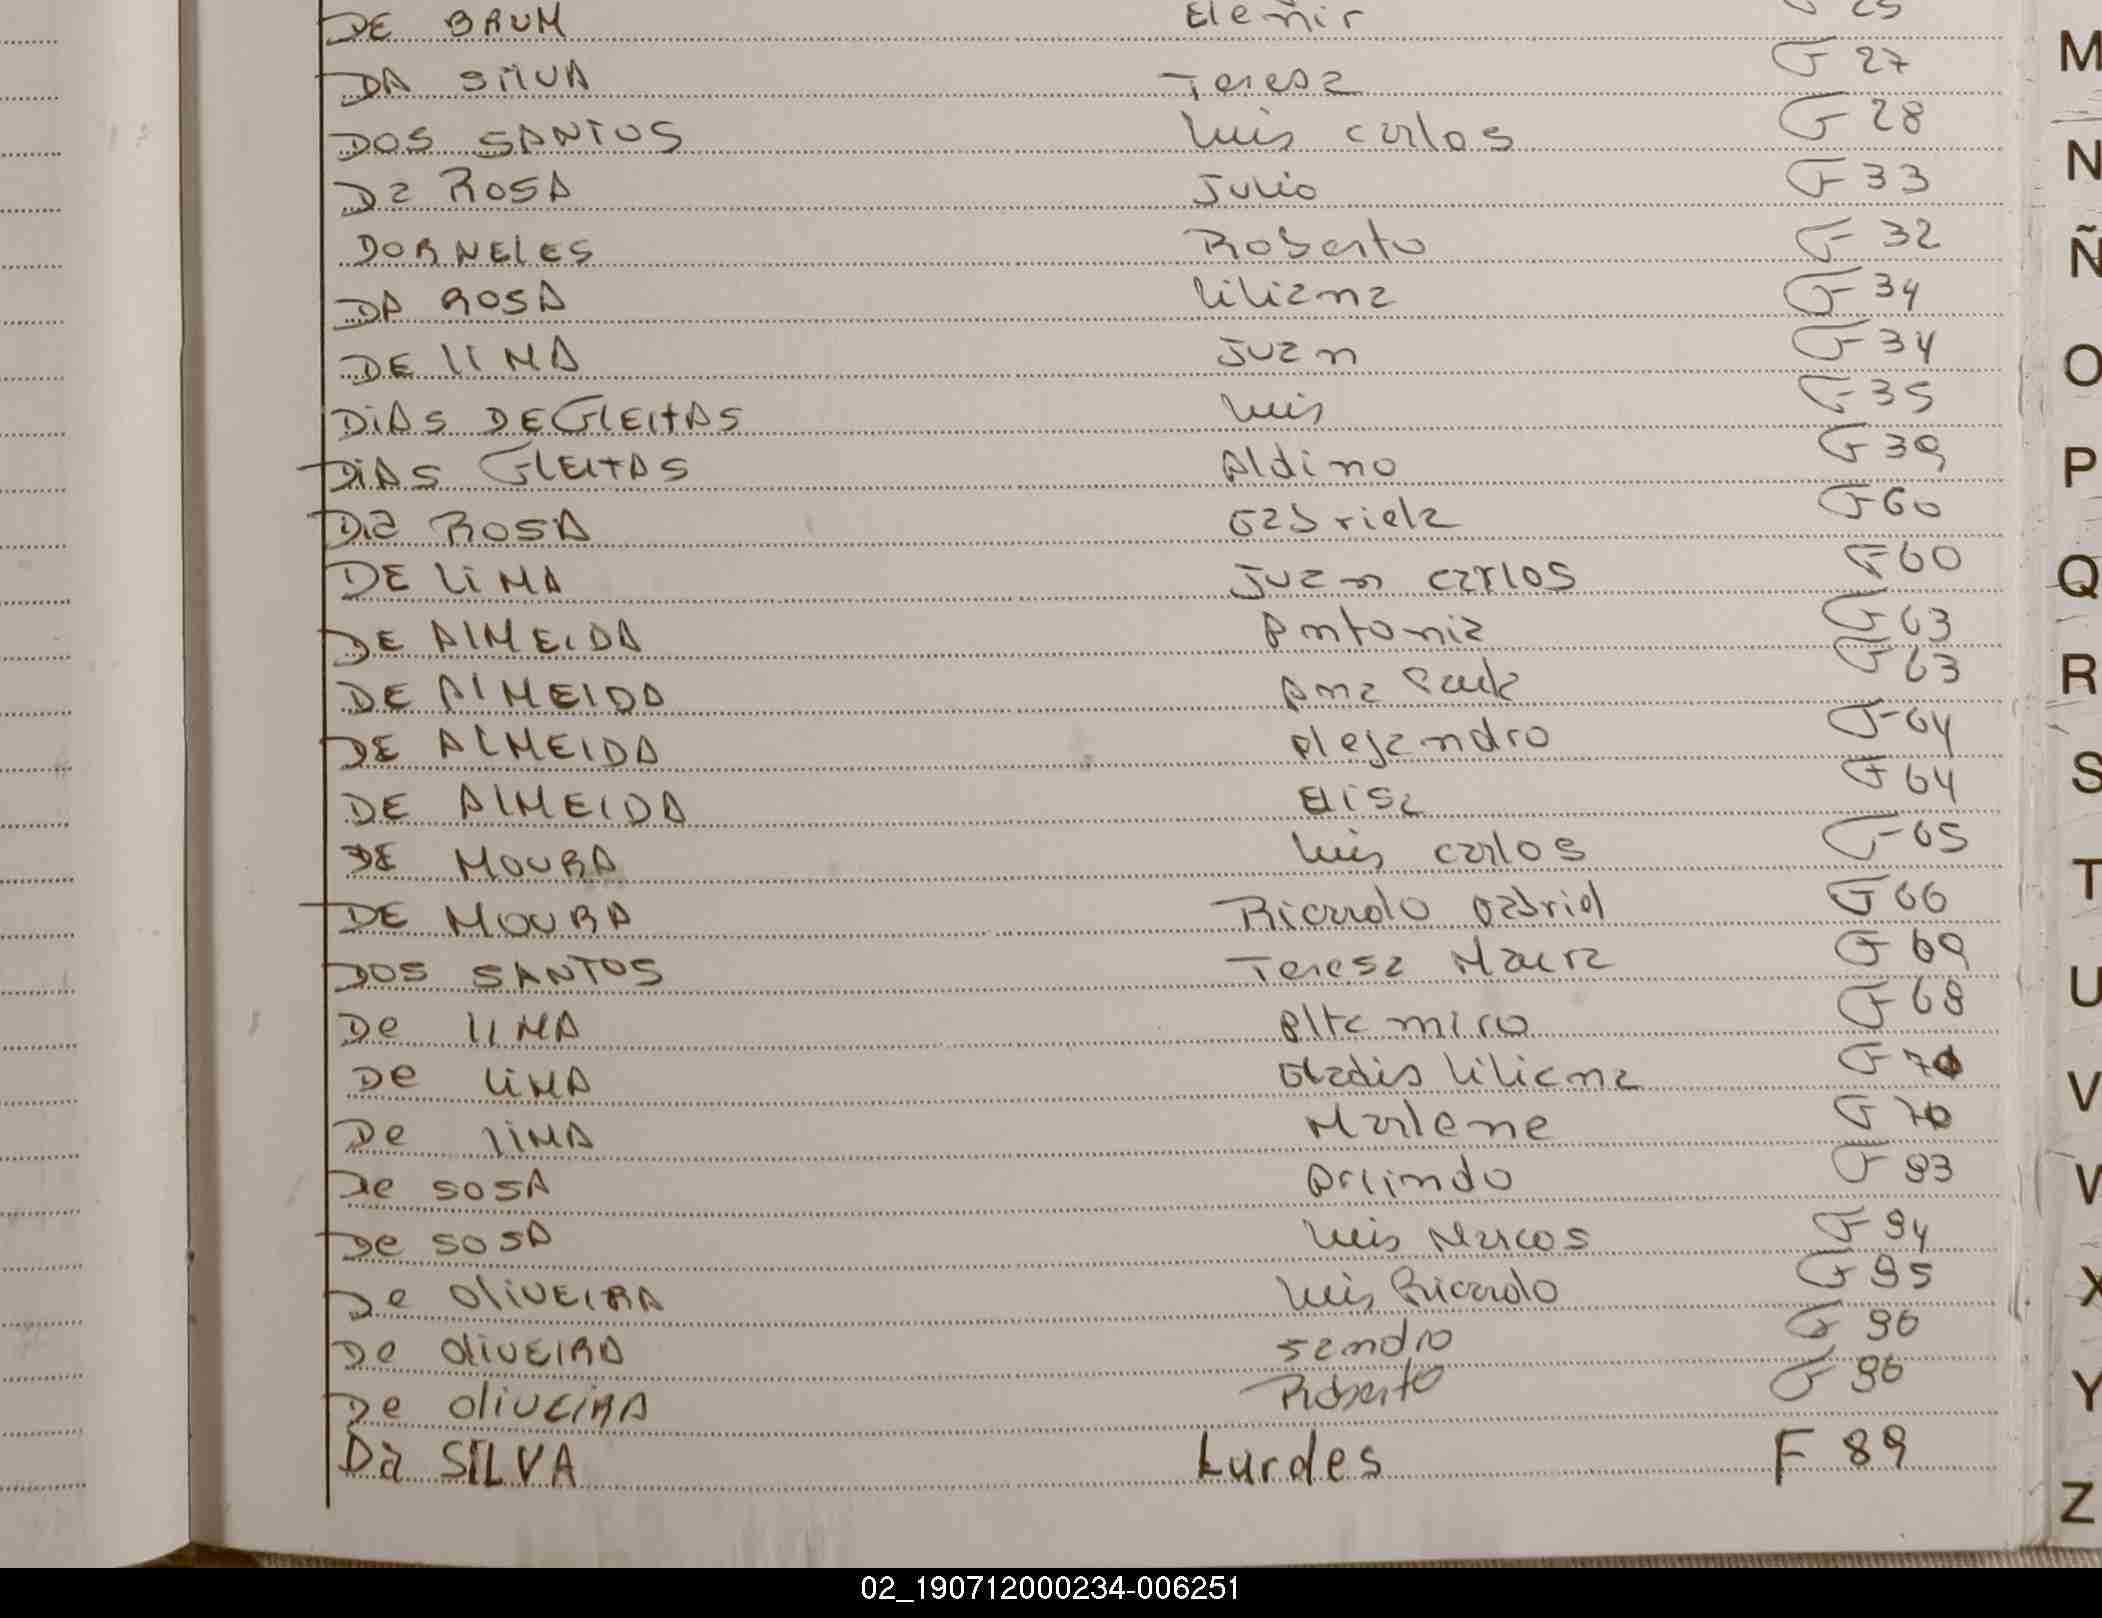 DE BRUM Elenir F 25
DA SILVA Teresa F 27
DOS SANTOS Luis carlos F 28
Da ROSA Julio F 33
DORNELES Roberto F 32
DA ROSA Liliana F 34
DE LIMA Juan F 34
DIAS DE FLEITAS Luis F 35
DIAS FLEITAS Aldino F 39
Da ROSA Gabriela F 60
DE LIMA Juan carlos F 60
DE ALMEIDA Antonia F 63
DE ALMEIDA Ana Paula F 63
DE ALMEIDA Alejandro F 64
DE ALMEIDA Elisa F 64
DE MOURA Luis carlos F 65
DE MOURA Ricardo Gabriel F 66
DOS SANTOS Teresa Maira F 69
De LIMA Altamiro F 68
De LIMA Gladis Liliana F 70
De LIMA Marlene F 70
De SOSA Arlindo F 93
De SOSA Luis Marcos F 94
De OLIVEIRA Luis Ricardo F 95
De OLIVEIRA Sandro F 96
De OLIVEIRA Roberto F 96
Da SILVA Lurdes F 89
M
N
Ñ
O
P
Q
R
S
T
U
V
X
Y
Z
02_190712000234-006251